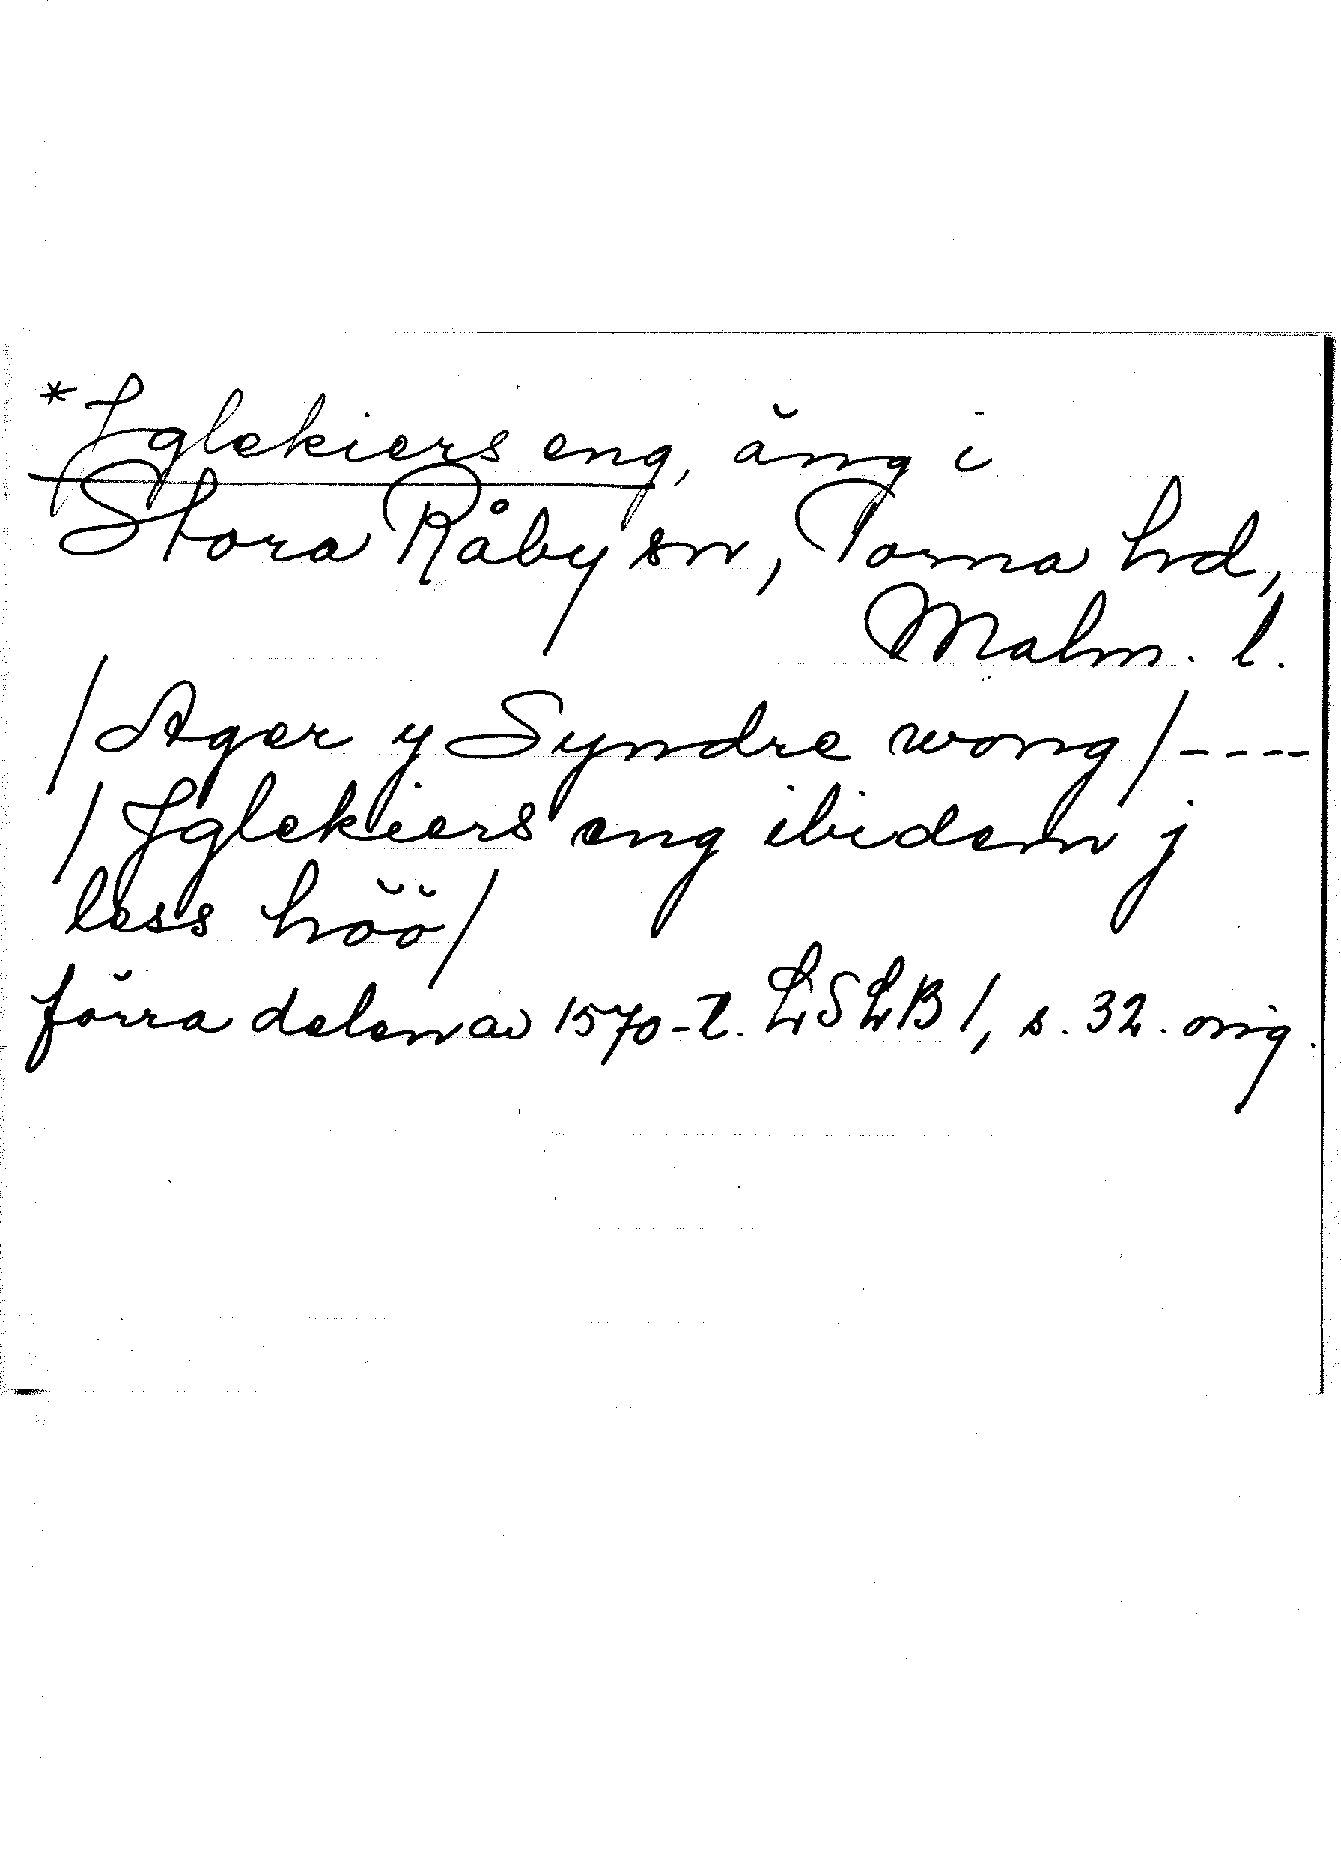 *Jglekiers eng, äng i
Stora Råby sn, Torna hd,
Malm. l.
/Ager y Syndre wong/----
/Jglekiers eng ibidem j
less höö/
förra delen av 1570-t. LSLB 1, s. 32. orig.